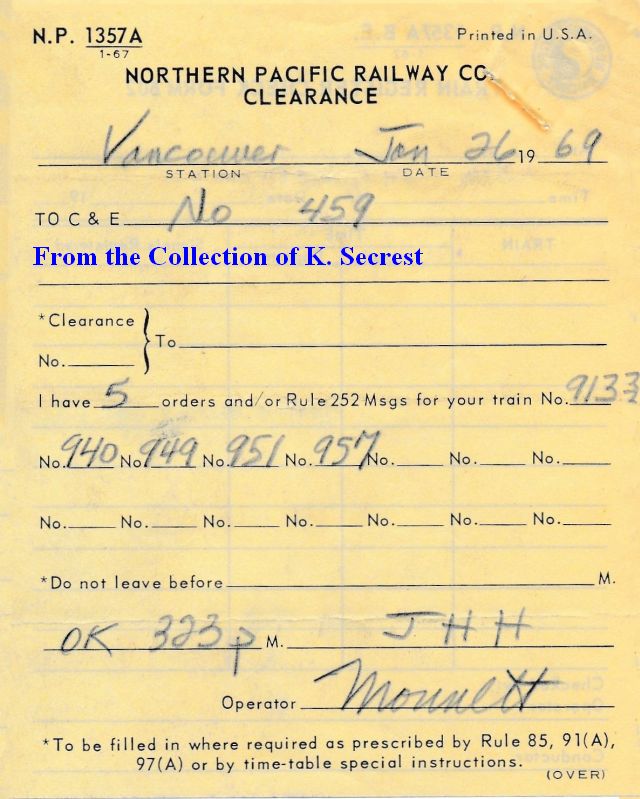 N.P. 1357A Printed in U.S.A.
1-67
NORTHERN PACIFIC RAILWAY CO.
CLEARANCE
Vancouver Jan 26 19 69
STATION DATE
TO C & E No 459
From the Collection of K. Secrest
*Clearance
No. To
I have 5 orders and/or Rule 252 Msgs for your train No. 933
No. 940 No. 949 No. 951 No. 957 No. No. No.
No. No. No. No. No. No. No.
*Do not leave before M.
OK 323 p M. JHH
Operator
*To be filled in where required as prescribed by Rule 85, 91(A),
97(A) or by time-table special instructions.
(OVER)